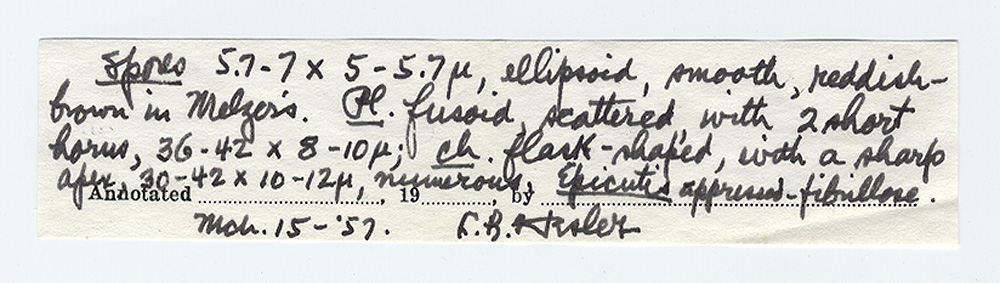 Spores 5.7-7 x 5-5.7µ, ellipsoid, smooth, reddish-
brown in Melzer's. Pl. fusoid, scattered, with 2 short
horns, 36-42 x 8-10µ; ch. flask-shaped, with a sharp
apex, 30-42 x 10-12µ, numerous, Epicutis appressed-fibrillose.
Annotated ........................, 19............, by ........................
Mch. 15-'57. L.R. Hesler